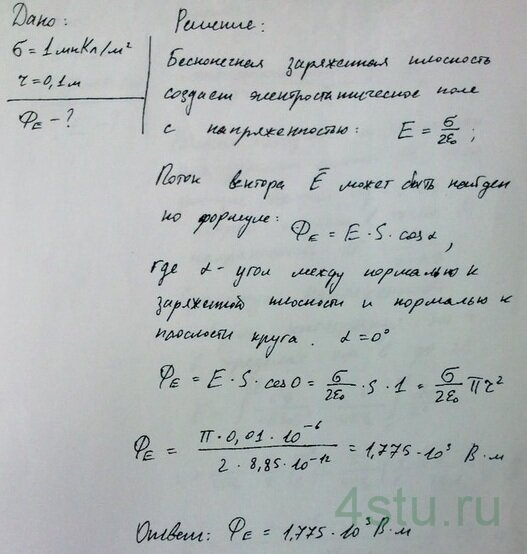 Дано:
σ = 1 мкКл/м²
r = 0,1 м
Φ_E - ?
Решение:
Бесконечная заряженная плоскость
создает электростатическое поле
с напряженностью: E = σ/2ε₀ ;
Поток вектора E̅ может быть найден
по формуле:
Φ_E = E · S · cos α ,
где α - угол между нормалью к
заряженной плоскости и нормалью к
плоскости круга. α = 0°
Φ_E = E · S · cos 0 = σ/2ε₀ · S · 1 = σ/2ε₀ πr²
Φ_E = π · 0,01 · 10⁻⁶ / 2 · 8,85 · 10⁻¹² = 1,775 · 10³ В·м
Ответ: Φ_E = 1,775 · 10³ В·м
4stu.ru